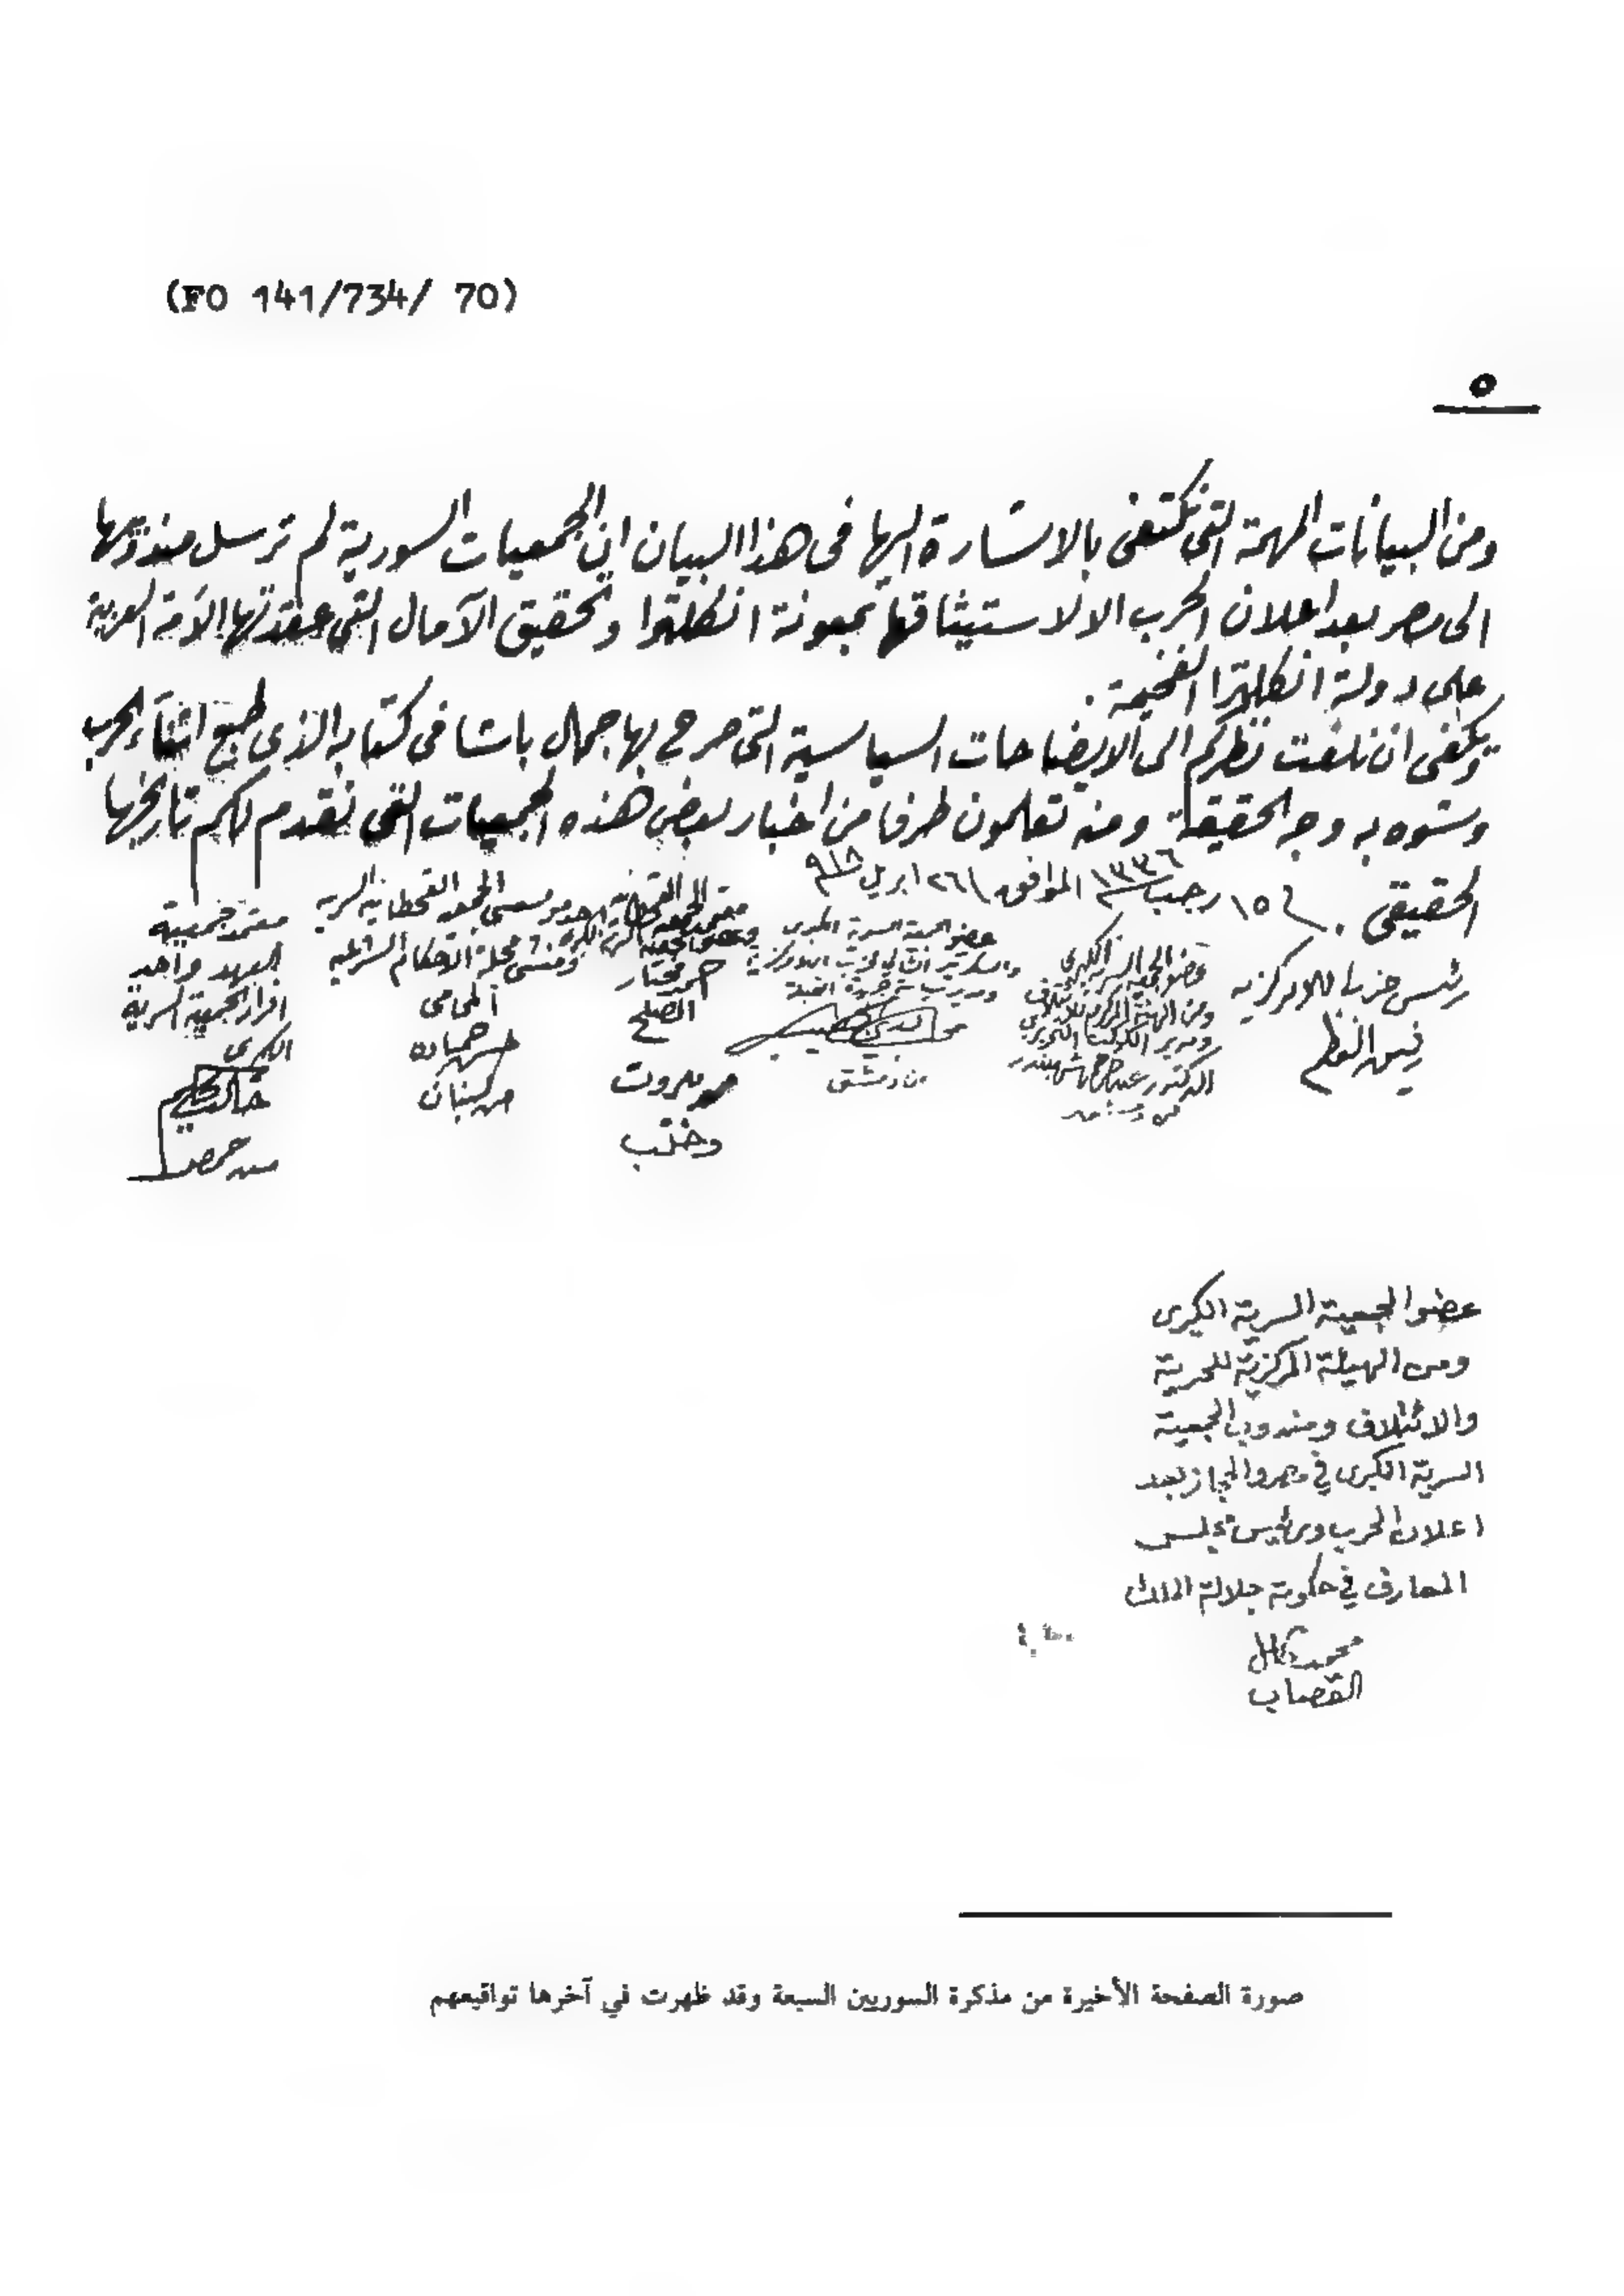 (FO 141/734/ 70)
٥
ومن البيانات المهمة التى نكتفى بالاشارة اليها فى هذا البيان ان الجمعيات السورية لم ترسل مندوبيها
الى مصر بعد اعلان الحرب الا لاستيثاقها بمعونة انكلترا وتحقيق الآمال التى عقدتها الأمة العربية
على دولة انكلترا الفخيمة .
ويكفى ان نلفت نظركم الى الايضاحات السياسية التى صرح بها جمال باشا فى كتابه الذى طبع اثناء الحرب
وشوه به وجه الحقيقة ومنه تعلمون طرفا من اخبار بعض هذه الجمعيات التى نقدم لكم تاريخها
الحقيقى . ١٥ رجب ١٣٣٦ الموافق ٢٦ ابريل ٩١٨
رئيس حزب اللامركزيه
رفيق العظم
عضو الجمعية السرية الكبرى
ومن الهيئة المركزية للائتلاف
ومدير الكوكب التحريرى
الدكتور عبد الرحمن شهبندر
من دمشق
عضو الجمعية السرية الكبرى
وسكرتير لحزب اللامركزية
ومدير جريدة القبلة
محب الدين الخطيب
من دمشق
معتمد الجمعية القحطانية
مختار
الصلح
من بيروت
وحلب
الجمعية القحطانية السرية
ومنشئ مجلة الاحكام الشرعيه
المحامى
حسن حماده
من لبنان
معتمد جمعية
العهد واحد
افراد الجمعية السرية
الكبرى
خالد الحكيم
من حمص
عضو الجمعية السرية الكبرى
ومن الهيئة المركزية للحرية
والائتلاف ومندوب الجمعية
السرية الكبرى في مصر والحجاز بعد
اعلان الحرب ورئيس مجلس
المعارف في حكومة جلالة الملك
محمد كامل
القصاب
صورة الصفحة الأخيرة من مذكرة السوريين السبعة وقد ظهرت في آخرها تواقيعهم